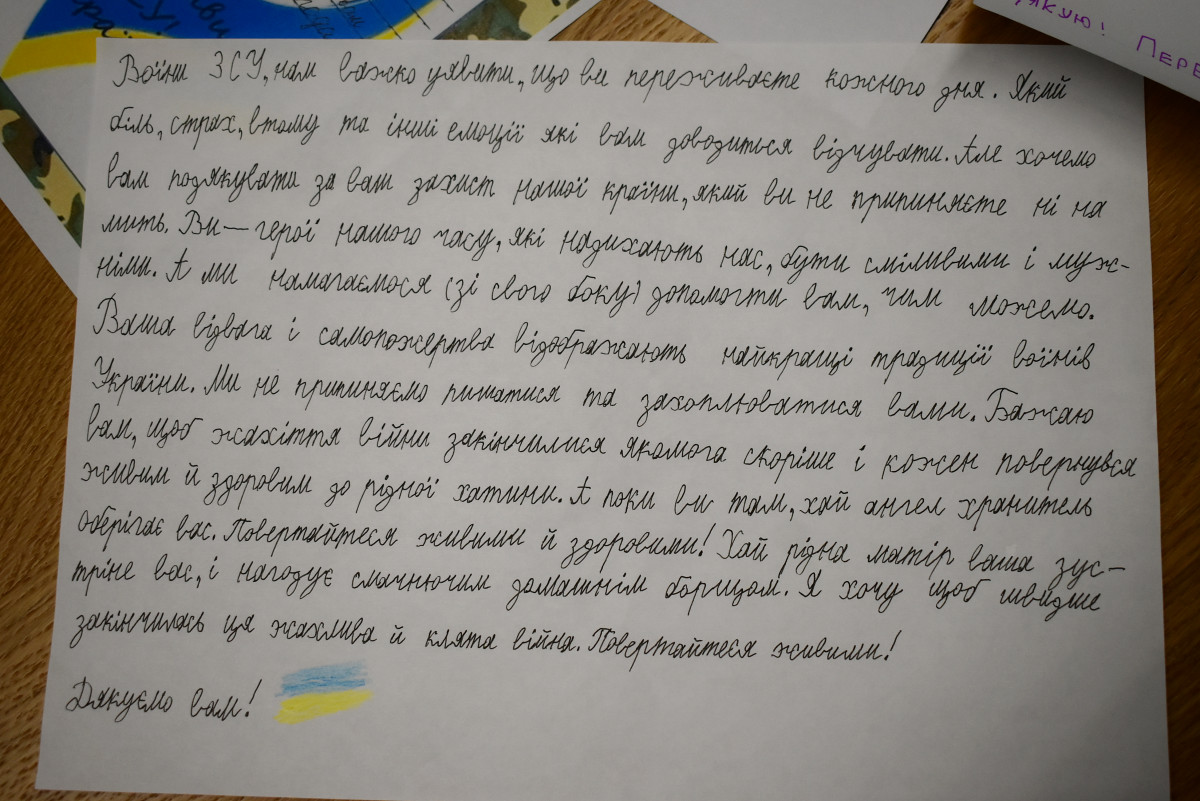 Воїни ЗСУ, нам важко уявити, що ви переживаєте кожного дня. Який
біль, страх, втому та інші емоції які вам доводиться відчувати. Але хочемо
вам подякувати за ваш захист нашої країни, який ви не припиняєте ні на
мить. Ви — герої нашого часу, які надихають нас, бути сміливими і муж-
німи. А ми намагаємося (зі свого боку) допомогти вам, чим можемо.
Ваша відвага і самопожертва відображають найкращі традиції воїнів
України. Ми не припиняємо пишатися та захоплюватися вами. Бажаю
вам, щоб жахіття війни закінчилися якомога скоріше і кожен повернувся
живим й здоровим до рідної хатини. А поки ви там, хай ангел хранитель
оберігає вас. Повертайтеся живими й здоровими! Хай рідна матір ваша зус-
тріне вас, і нагодує смачнючим домашнім борщом. Я хочу щоб швидше
закінчилась ця жахлива й клята війна. Повертайтеся живими!
Дякуємо вам!
якую! Пере